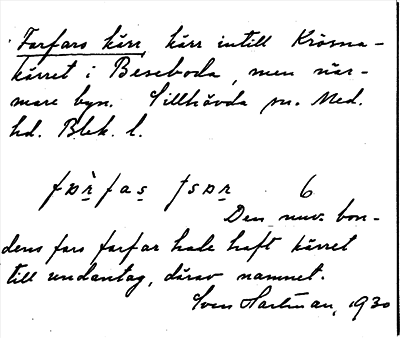 Farfars kärr, kärr intill Krösna-
kärret i Beseboda, men när-
mare byn. Tillhövda sn. Med.
hd. Blek. l.
6
Den nuv. bon-
dens fars farfar hade haft kärret
till undantag, därav namnet.
Sven Hartman, 1930